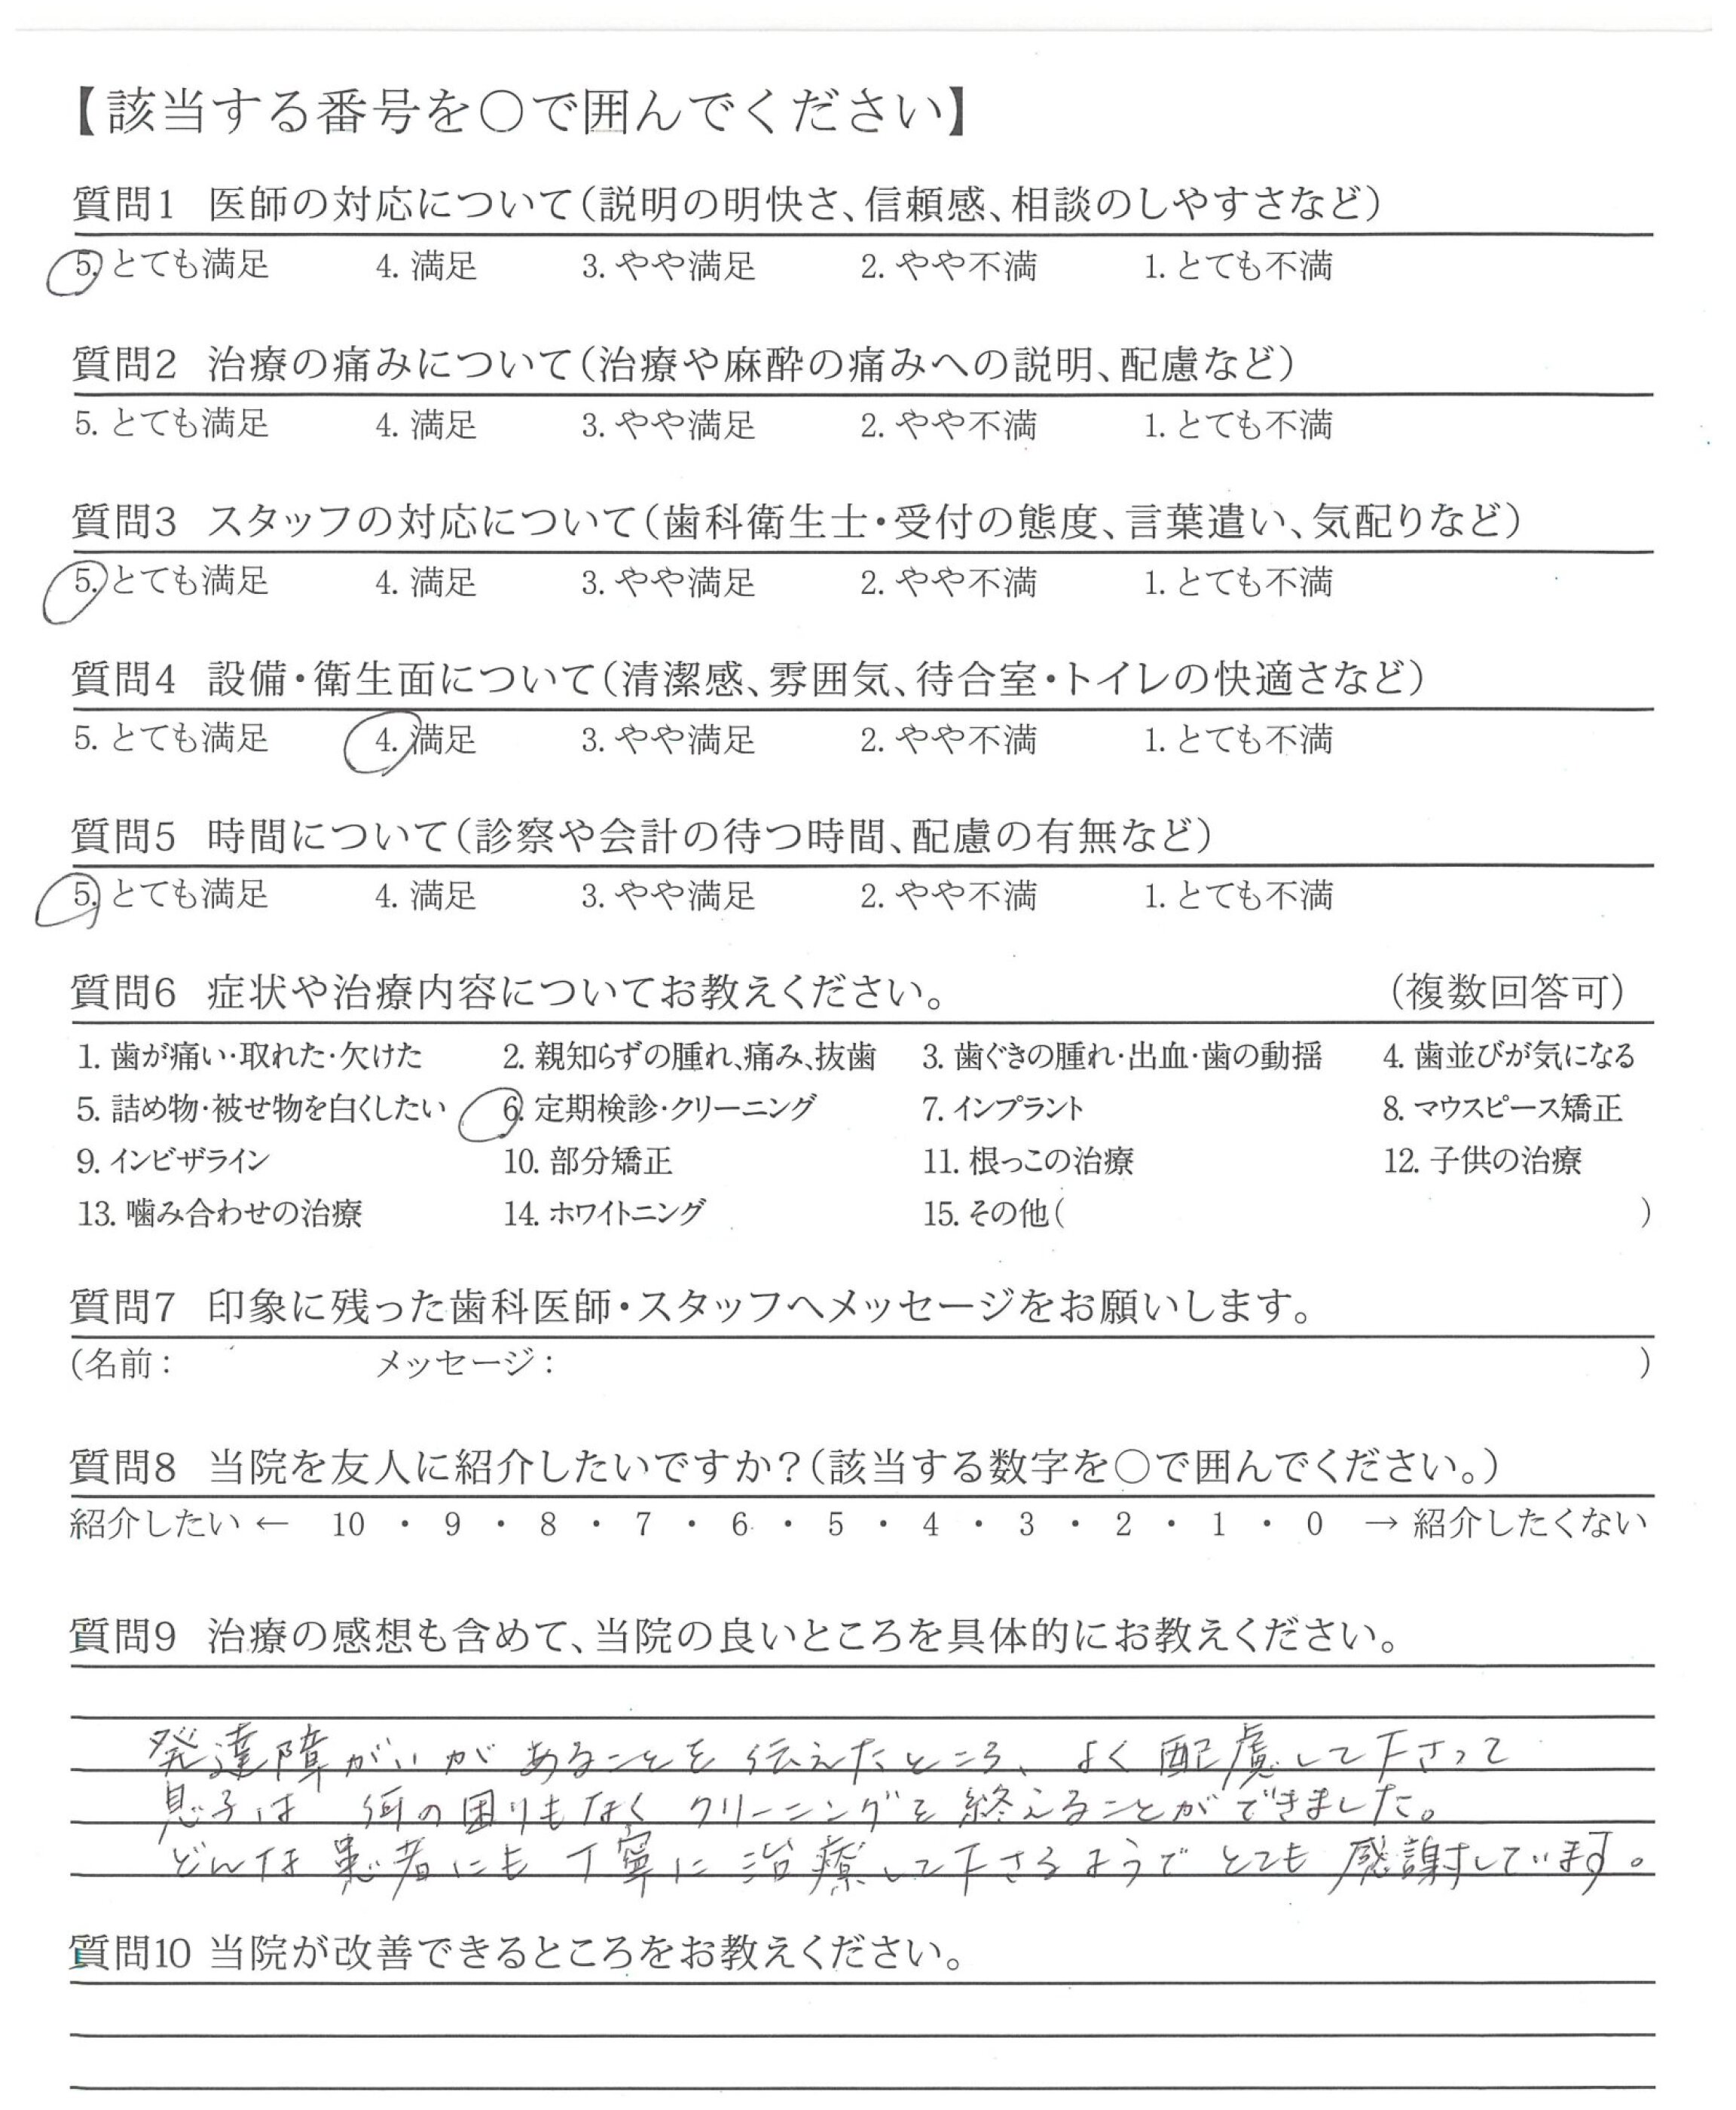 【該当する番号を○で囲んでください】
質問1 医師の対応について(説明の明快さ、信頼感、相談のしやすさなど)
5. とても満足 4. 満足 3. やや満足 2. やや不満 1. とても不満
質問2 治療の痛みについて(治療や麻酔の痛みへの説明、配慮など)
5. とても満足 4. 満足 3. やや満足 2. やや不満 1. とても不満
質問3 スタッフの対応について(歯科衛生士・受付の態度、言葉遣い、気配りなど)
5. とても満足 4. 満足 3. やや満足 2. やや不満 1. とても不満
質問4 設備・衛生面について(清潔感、雰囲気、待合室・トイレの快適さなど)
5. とても満足 4. 満足 3. やや満足 2. やや不満 1. とても不満
質問5 時間について(診察や会計の待つ時間、配慮の有無など)
5. とても満足 4. 満足 3. やや満足 2. やや不満 1. とても不満
質問6 症状や治療内容についてお教えください。 (複数回答可)
1. 歯が痛い・取れた・欠けた 2. 親知らずの腫れ、痛み、抜歯 3. 歯ぐきの腫れ・出血・歯の動揺 4. 歯並びが気になる
5. 詰め物・被せ物を白くしたい 6. 定期検診・クリーニング 7. インプラント 8. マウスピース矯正
9. インビザライン 10. 部分矯正 11. 根っこの治療 12. 子供の治療
13. 噛み合わせの治療 14. ホワイトニング 15. その他( )
質問7 印象に残った歯科医師・スタッフへメッセージをお願いします。
(名前: メッセージ: )
質問8 当院を友人に紹介したいですか?(該当する数字を○で囲んでください。)
紹介したい ← 10 ・ 9 ・ 8 ・ 7 ・ 6 ・ 5 ・ 4 ・ 3 ・ 2 ・ 1 ・ 0 → 紹介したくない
質問9 治療の感想も含めて、当院の良いところを具体的にお教えください。
発達障がいがあることを伝えたところ、よく配慮して下さって
息子は 何の困りもなく クリーニングを終えることができました。
どんな患者にも丁寧に治療して下さるようでとても感謝しています。
質問10 当院が改善できるところをお教えください。